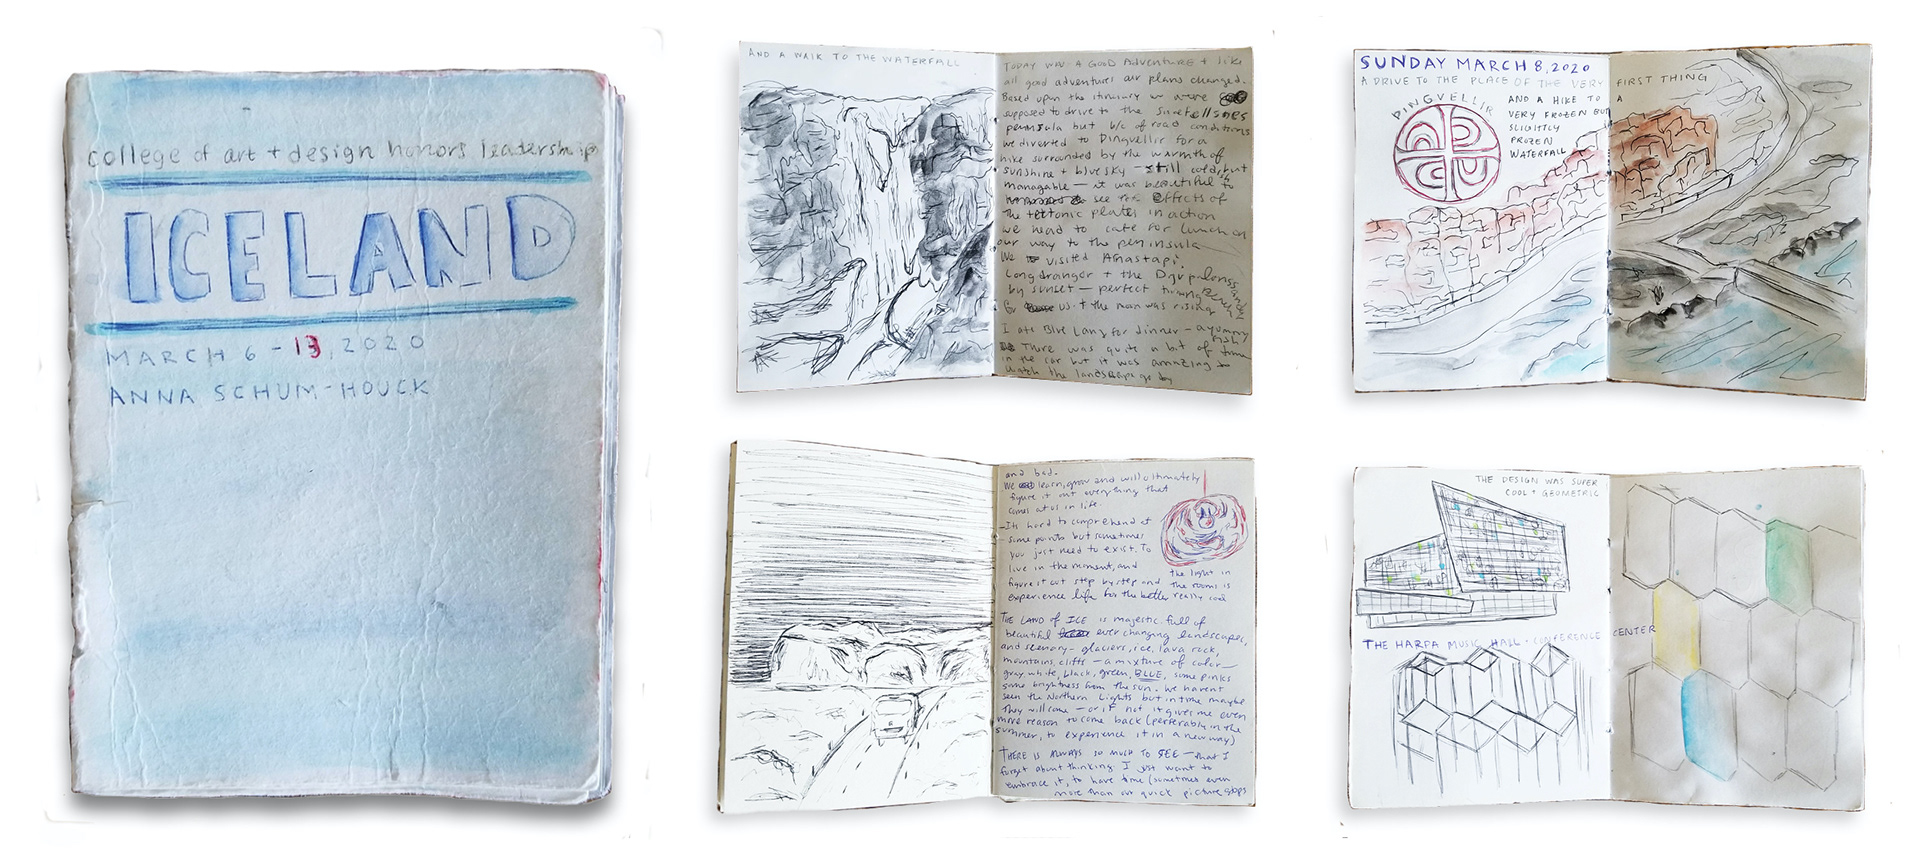 college of art + design honors leadership
ICELAND
MARCH 6 - 13, 2020
ANNA SCHUM-HOUCK
AND A WALK TO THE WATERFALL
TODAY WAS A GOOD ADVENTURE + like
all good adventures our plans changed.
Based upon the itinirary we were
supposed to drive to the
peninsula but b/c of road conditions
we diverted to Dingvellir for a
hike surrounded by the warmth of
sunshine + blue sky — still cold, but
managable — it was beautiful to
see the effects of
the tectonic plates in action
we head to cafe for lunch on
our way to the peninsula
We visited Arnastapi
Longdranger + the
by sunset — perfect timing
for us + the moon was rising
I ate Blue Lang for dinner — a yummy
fish
There was quite a bit of time
in the car but it was amazing to
watch the landscape go by
SUNDAY MARCH 8, 2020
A DRIVE TO THE PLACE OF THE VERY FIRST THING
DINGVELLIR
AND A HIKE TO A
VERY FROZEN BUT
SLIGHTLY
FROZEN
WATERFALL
and bad.
We learn, grow and will ultimately
figure it out everything that
comes at us in life.
- Its hard to comprehend at
some points but sometimes
you just need to exist. To
live in the moment, and
figure it out step by step and
experience life for the better
the light in
the rooms is
really cool
THE LAND OF ICE is majestic full of
beautiful ever changing landscapes,
and scenery - glaciers, ice, lava rock,
mountains, cliffs — a mixture of color —
gray, white, black, green, BLUE, some pinks
some brightness from the sun. We havent
seen the Northern Lights but in time maybe
they will come — or if not it gives me even
more reason to come back (perferably in the
summer, to experience it in a new way)
THERE IS ALWAYS SO MUCH TO SEE — that I
forget about thinking I just want to
embrace it, to have time (sometimes even
more than our quick picture stops
THE DESIGN WAS SUPER
COOL + GEOMETRIC
THE HARPA MUSIC HALL + CONFERENCE CENTER